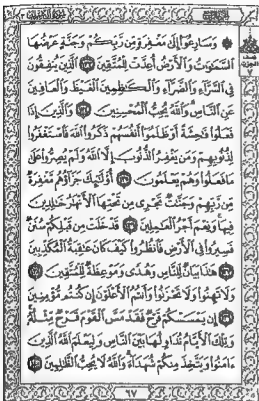 ۞ وَسَارِعُوٓا۟ إِلَىٰ مَغْفِرَةٍ مِّن رَّبِّكُمْ وَجَنَّةٍ عَرْضُهَا
ٱلسَّمَٰوَٰتُ وَٱلْأَرْضُ أُعِدَّتْ لِلْمُتَّقِينَ ١٣٣ ٱلَّذِينَ يُنفِقُونَ
فِى ٱلسَّرَّآءِ وَٱلضَّرَّآءِ وَٱلْكَٰظِمِينَ ٱلْغَيْظَ وَٱلْعَافِينَ
عَنِ ٱلنَّاسِ وَٱللَّهُ يُحِبُّ ٱلْمُحْسِنِينَ ١٣٤ وَٱلَّذِينَ إِذَا
فَعَلُوا۟ فَٰحِشَةً أَوْ ظَلَمُوٓا۟ أَنفُسَهُمْ ذَكَرُوا۟ ٱللَّهَ فَٱسْتَغْفَرُوا۟
لِذُنُوبِهِمْ وَمَن يَغْفِرُ ٱلذُّنُوبَ إِلَّا ٱللَّهُ وَلَمْ يُصِرُّوا۟ عَلَىٰ
مَا فَعَلُوا۟ وَهُمْ يَعْلَمُونَ ١٣٥ أُو۟لَٰٓئِكَ جَزَآؤُهُم مَّغْفِرَةٌ
مِّن رَّبِّهِمْ وَجَنَّٰتٌ تَجْرِى مِن تَحْتِهَا ٱلْأَنْهَٰرُ خَٰلِدِينَ
فِيهَا وَنِعْمَ أَجْرُ ٱلْعَٰمِلِينَ ١٣٦ قَدْ خَلَتْ مِن قَبْلِكُمْ سُنَنٌ
فَسِيرُوا۟ فِى ٱلْأَرْضِ فَٱنظُرُوا۟ كَيْفَ كَانَ عَٰقِبَةُ ٱلْمُكَذِّبِينَ
١٣٧ هَٰذَا بَيَانٌ لِّلنَّاسِ وَهُدًى وَمَوْعِظَةٌ لِّلْمُتَّقِينَ ١٣٨
وَلَا تَهِنُوا۟ وَلَا تَحْزَنُوا۟ وَأَنتُمُ ٱلْأَعْلَوْنَ إِن كُنتُم مُّؤْمِنِينَ
١٣٩ إِن يَمْسَسْكُمْ قَرْحٌ فَقَدْ مَسَّ ٱلْقَوْمَ قَرْحٌ مِّثْلُهُۥ
وَتِلْكَ ٱلْأَيَّامُ نُدَاوِلُهَا بَيْنَ ٱلنَّاسِ وَلِيَعْلَمَ ٱللَّهُ ٱلَّذِينَ
ءَامَنُوا۟ وَيَتَّخِذَ مِنكُمْ شُهَدَآءَ وَٱللَّهُ لَا يُحِبُّ ٱلظَّٰلِمِينَ ١٤٠
٦٧